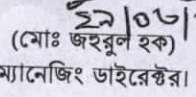 (মোঃ জহুরুল হক)
ম্যানেজিং ডাইরেক্টর।